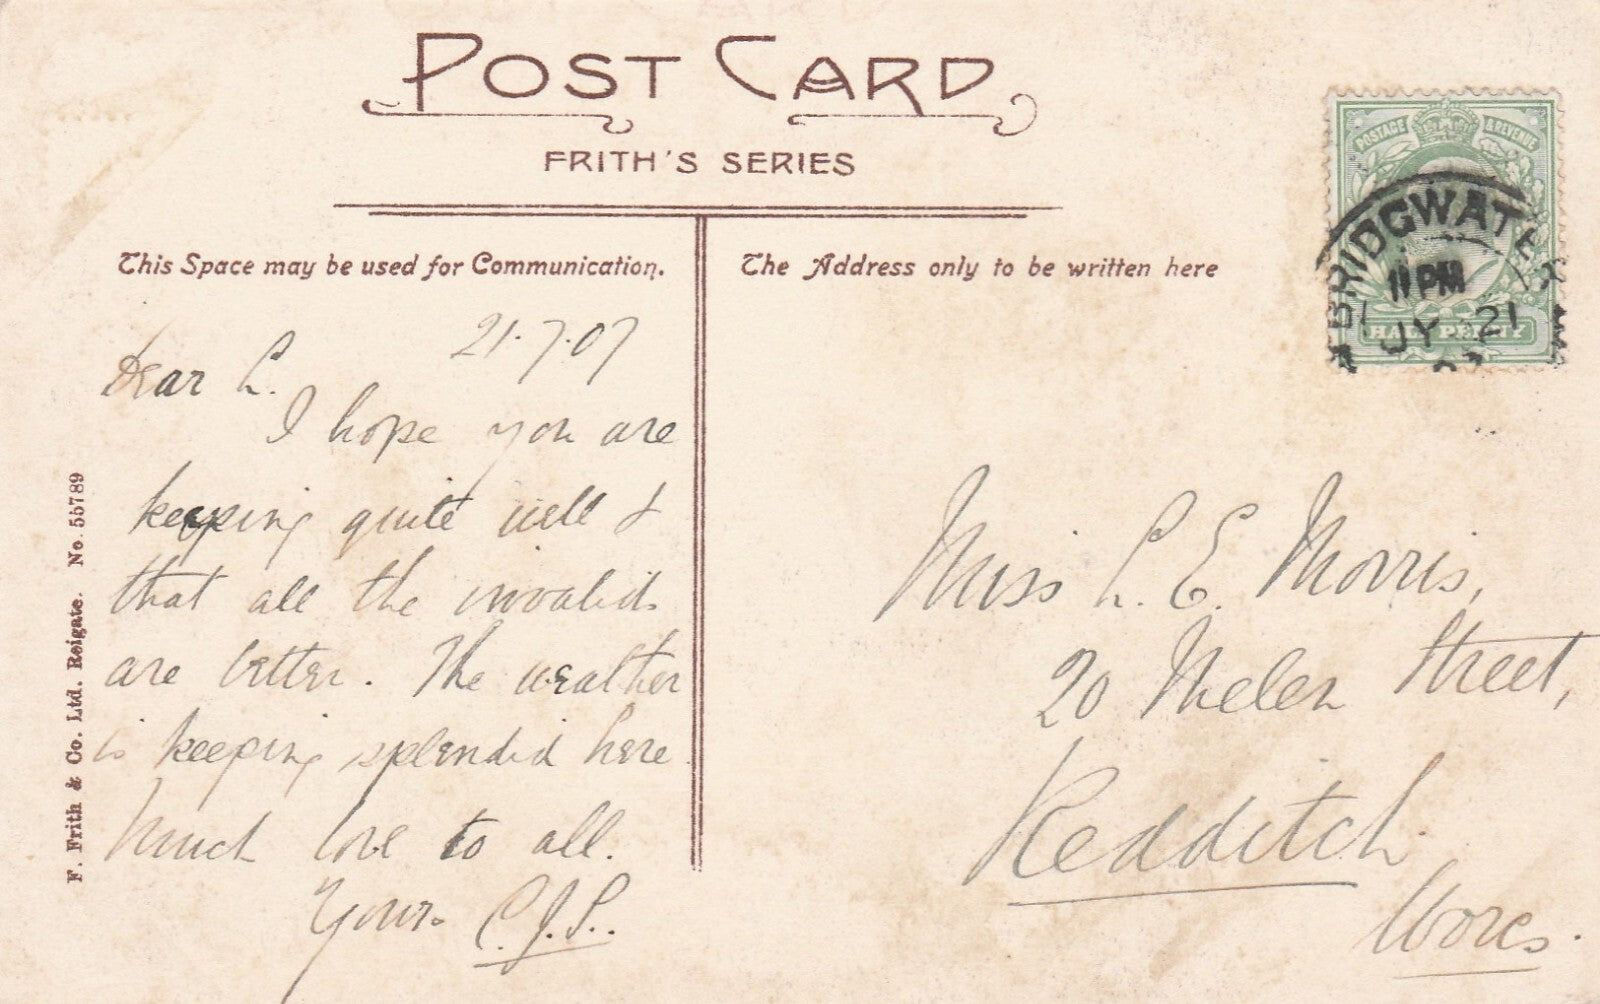 POST CARD
FRITH'S SERIES
This Space may be used for Communication.
The Address only to be written here
POSTAGE & REVENUE
HALF PENNY
BRIDGWATE
11 PM
JY 21
07
21.7.07
Dear L.
I hope you are
keeping quite well &
that all the invalids
are better. The weather
is keeping splendid here.
Much love to all.
Yours C.J.S.
Miss L. E. Morris,
20 Melen Street,
Redditch
Worcs.
F. Frith & Co. Ltd. Reigate. No. 55789